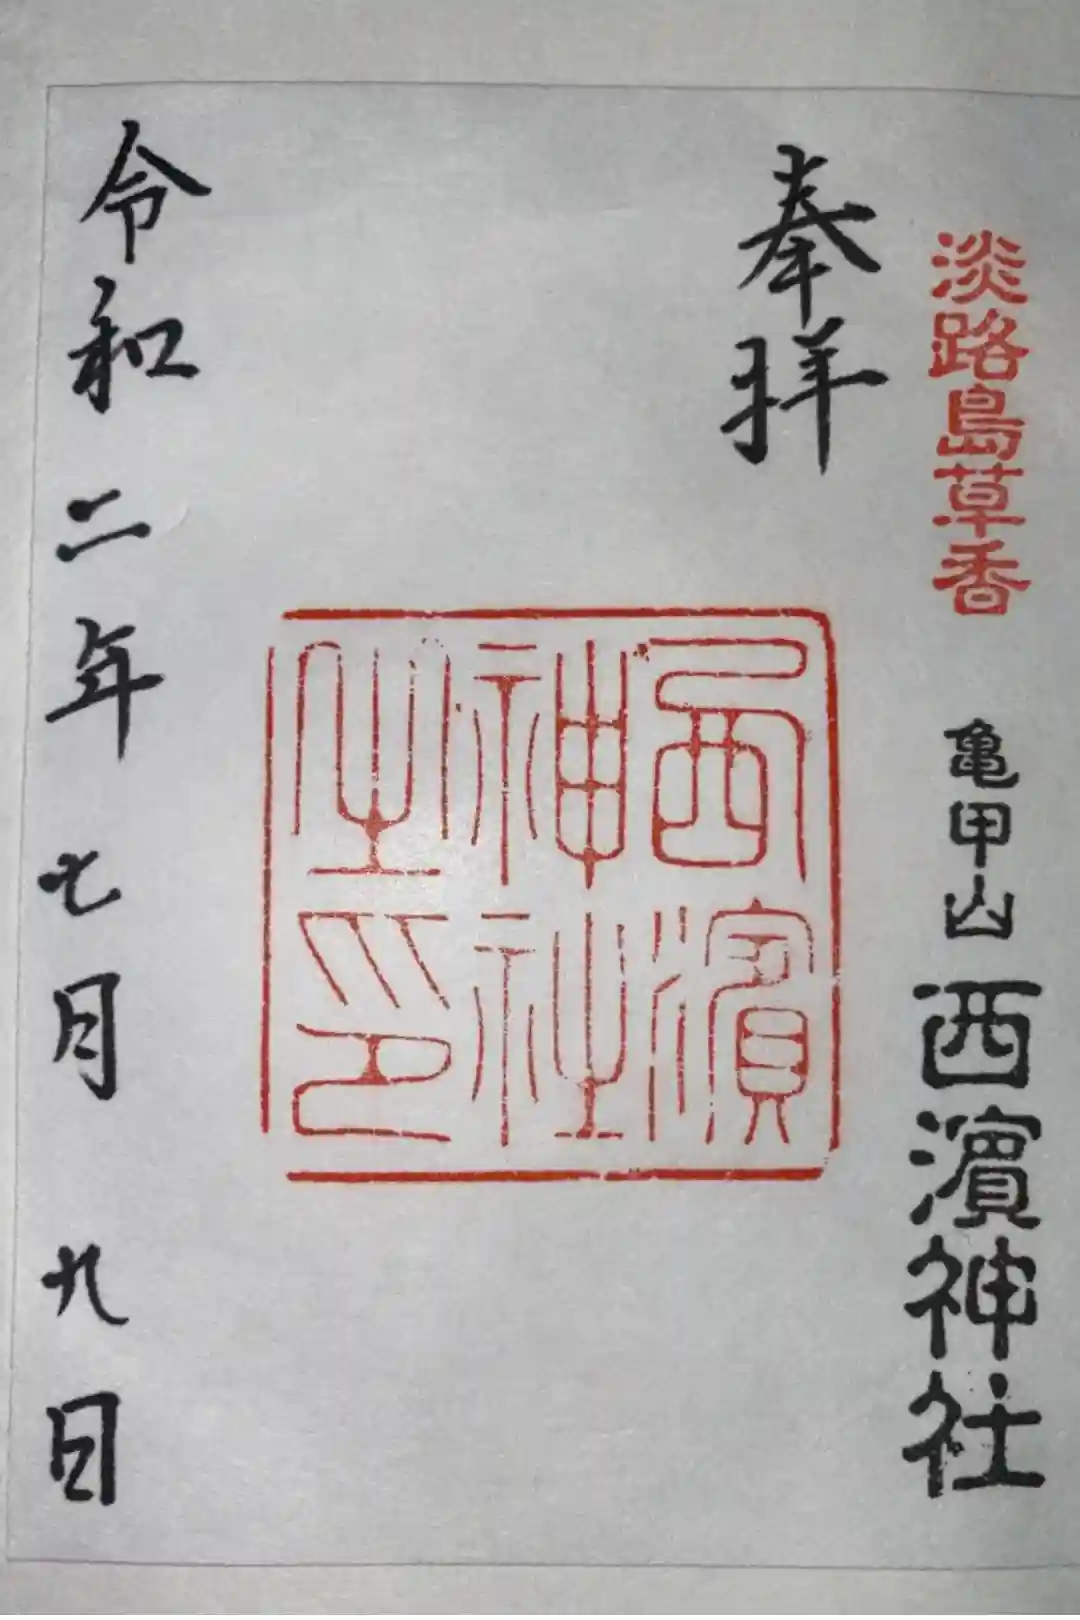 淡路島草香
亀甲山西濱神社
奉拝
西濱
神社
之印
令和二年七月九日